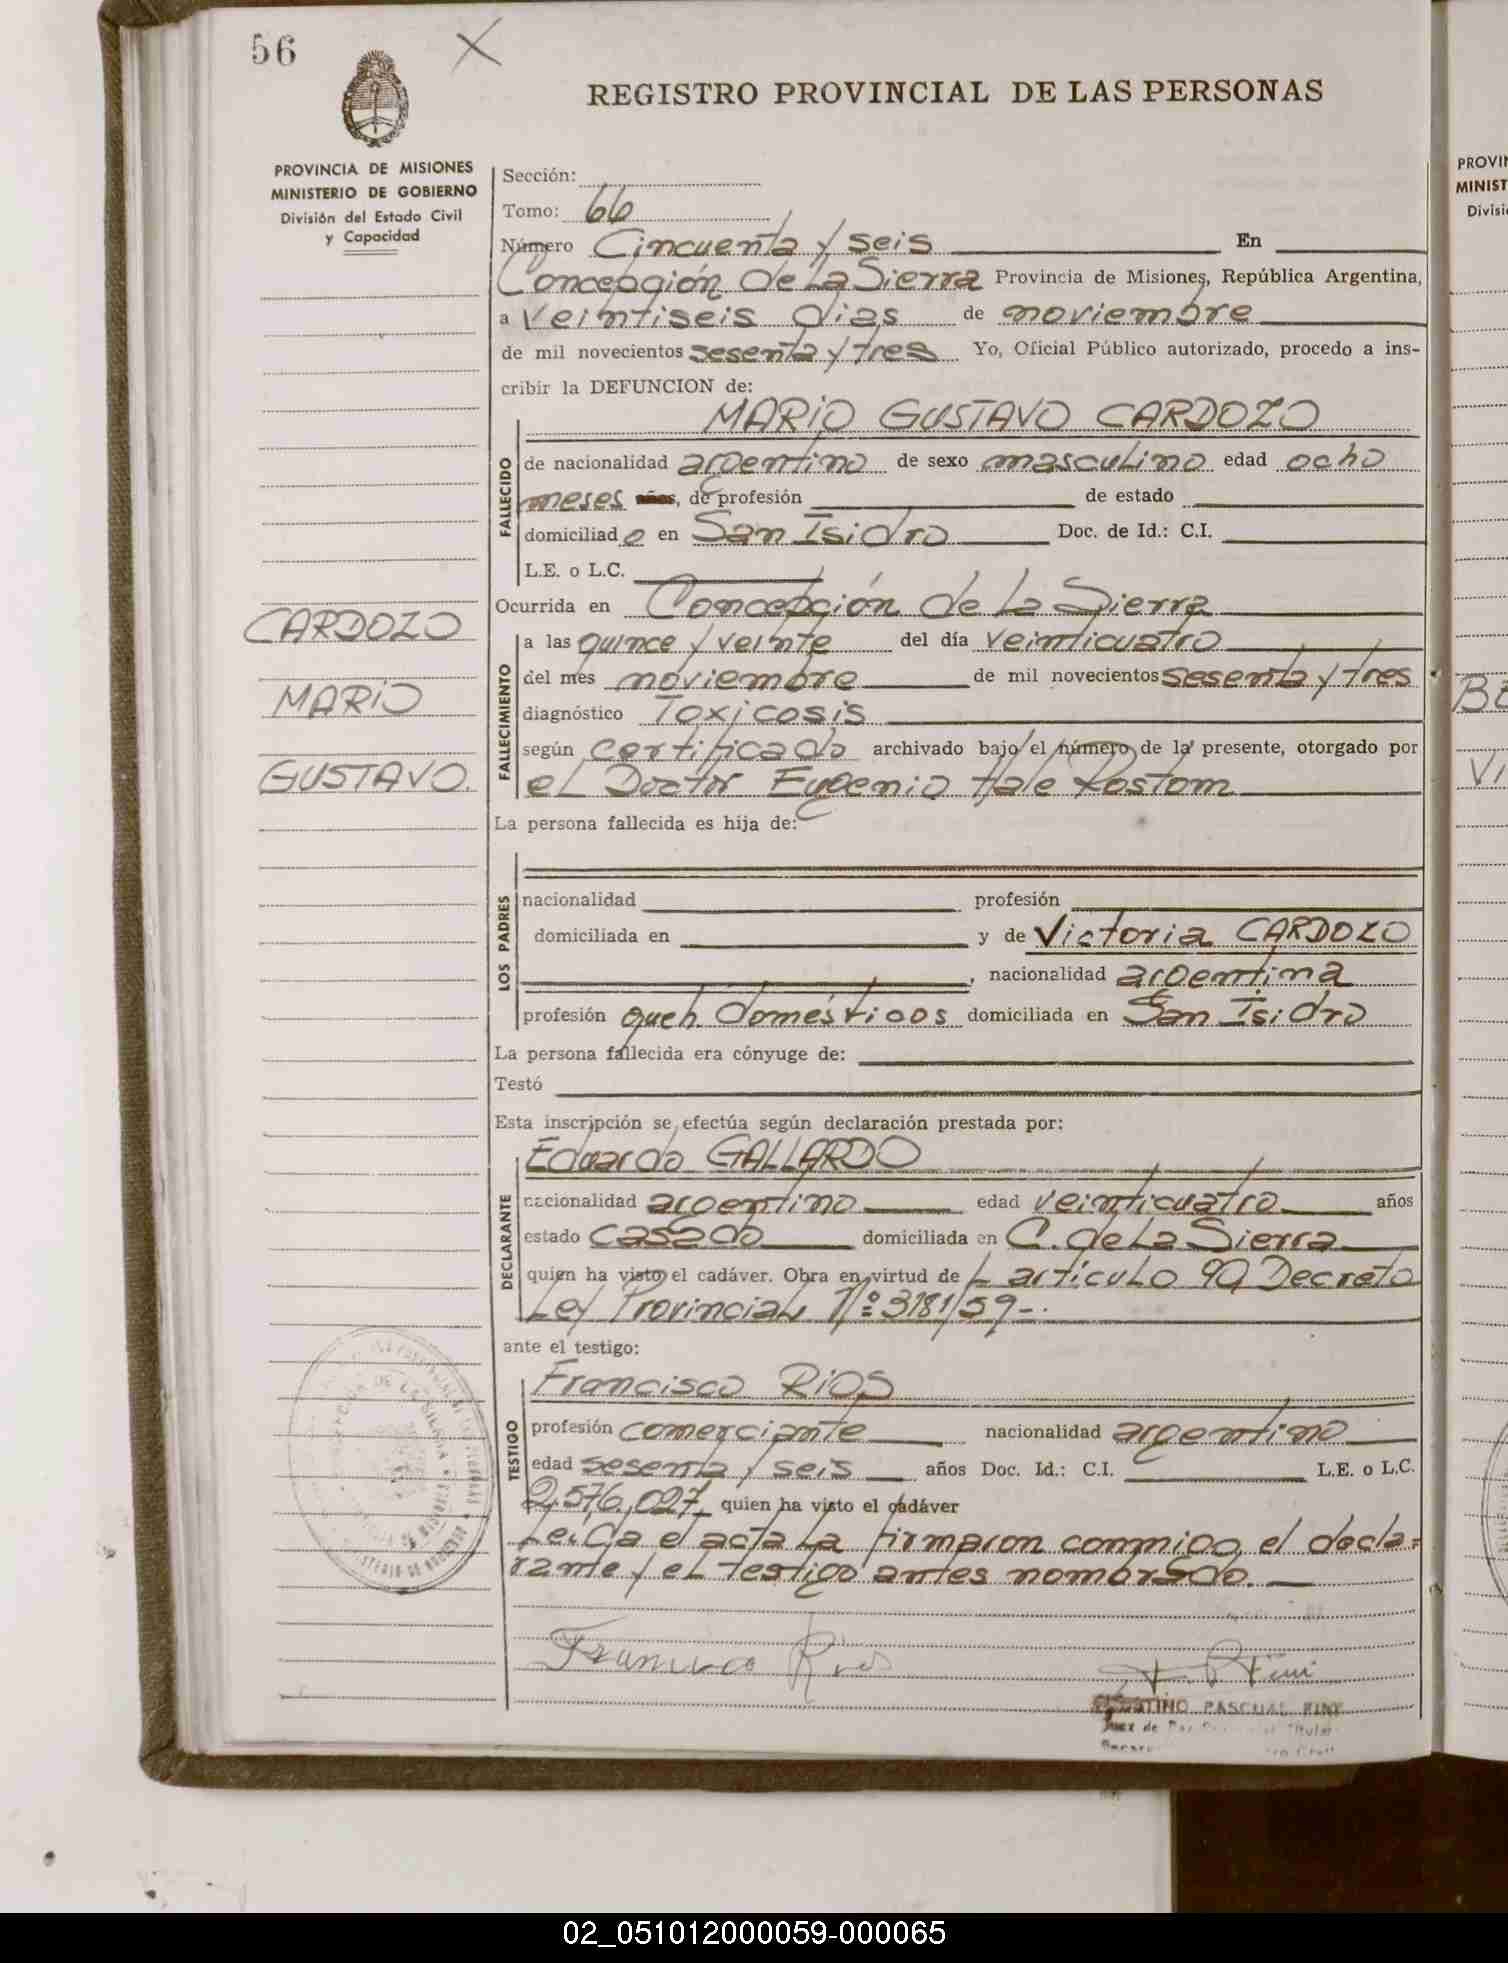 56
REGISTRO PROVINCIAL DE LAS PERSONAS
PROVINCIA DE MISIONES
MINISTERIO DE GOBIERNO
División del Estado Civil
y Capacidad
Sección:
Tomo: 66
Número Cincuenta y seis En
Concepción de La Sierra Provincia de Misiones, República Argentina,
a veintiseis dias de noviembre
de mil novecientos sesenta y tres Yo, Oficial Público autorizado, procedo a ins-
cribir la DEFUNCION de:
MARiO GUSTAVO CARDOZO
FALLECIDO
de nacionalidad argentino de sexo masculino edad ocho
meses años, de profesión de estado
domiciliado en San Isidro Doc. de Id.: C.I.
L.E. o L.C.
Ocurrida en Concepción de La Sierra
CARDOZO
MARiO
GUSTAVO.
FALLECIMIENTO
a las quince y veinte del día veinticuatro
del mes noviembre de mil novecientos sesenta y tres
diagnóstico Toxicosis
según certificado archivado bajo el número de la presente, otorgado por
eL Doctor Eugenio Hale Rostom
La persona fallecida es hija de:
LOS PADRES
nacionalidad profesión
domiciliada en y de Victoria CARDOZO
, nacionalidad argentina
profesión queh. domésticos domiciliada en San Isidro
La persona fallecida era cónyuge de:
Testó
Esta inscripción se efectúa según declaración prestada por:
Eduardo GALLARDO
DECLARANTE
nacionalidad argentino edad veinticuatro años
estado casado domiciliada en C. de La Sierra
quien ha visto el cadáver. Obra en virtud de L articuLo 90 Decreto
Ley ProvinciaL Nº 3181/59-.
ante el testigo:
Francisco RiOS
TESTIGO
profesión comerciante nacionalidad argentino
edad sesenta y seis años Doc. Id.: C.I. L.E. o L.C.
2.576.027 quien ha visto el cadáver
Leída el acta La firmaron conmigo el decla-
rante y eL testigo antes nombrado.
Francisco Rios
PASCUAL PINY
Juez de Paz Titular
PROVIN
MINIST
Divisió
02_051012000059-000065